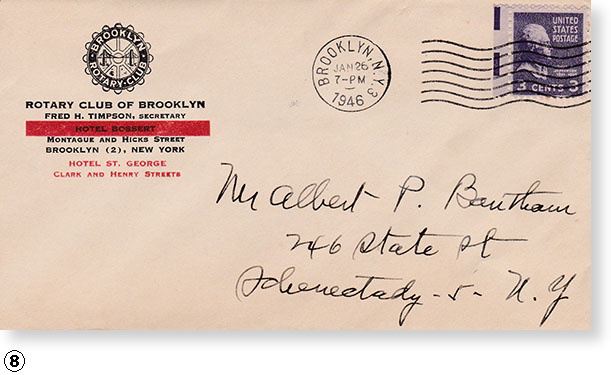 BROOKLYN
ROTARY CLUB
ROTARY CLUB OF BROOKLYN
FRED H. TIMPSON, SECRETARY
HOTEL BOSSERT
MONTAGUE AND HICKS STREET
BROOKLYN (2), NEW YORK
HOTEL ST. GEORGE
CLARK AND HENRY STREETS
BROOKLYN, N.Y. 3
JAN 26
7-PM
1946
UNITED
STATES
POSTAGE
3 CENTS 3
Mr Albert P. Bantham
246 State St
Schenectady - 5 - N. Y
8